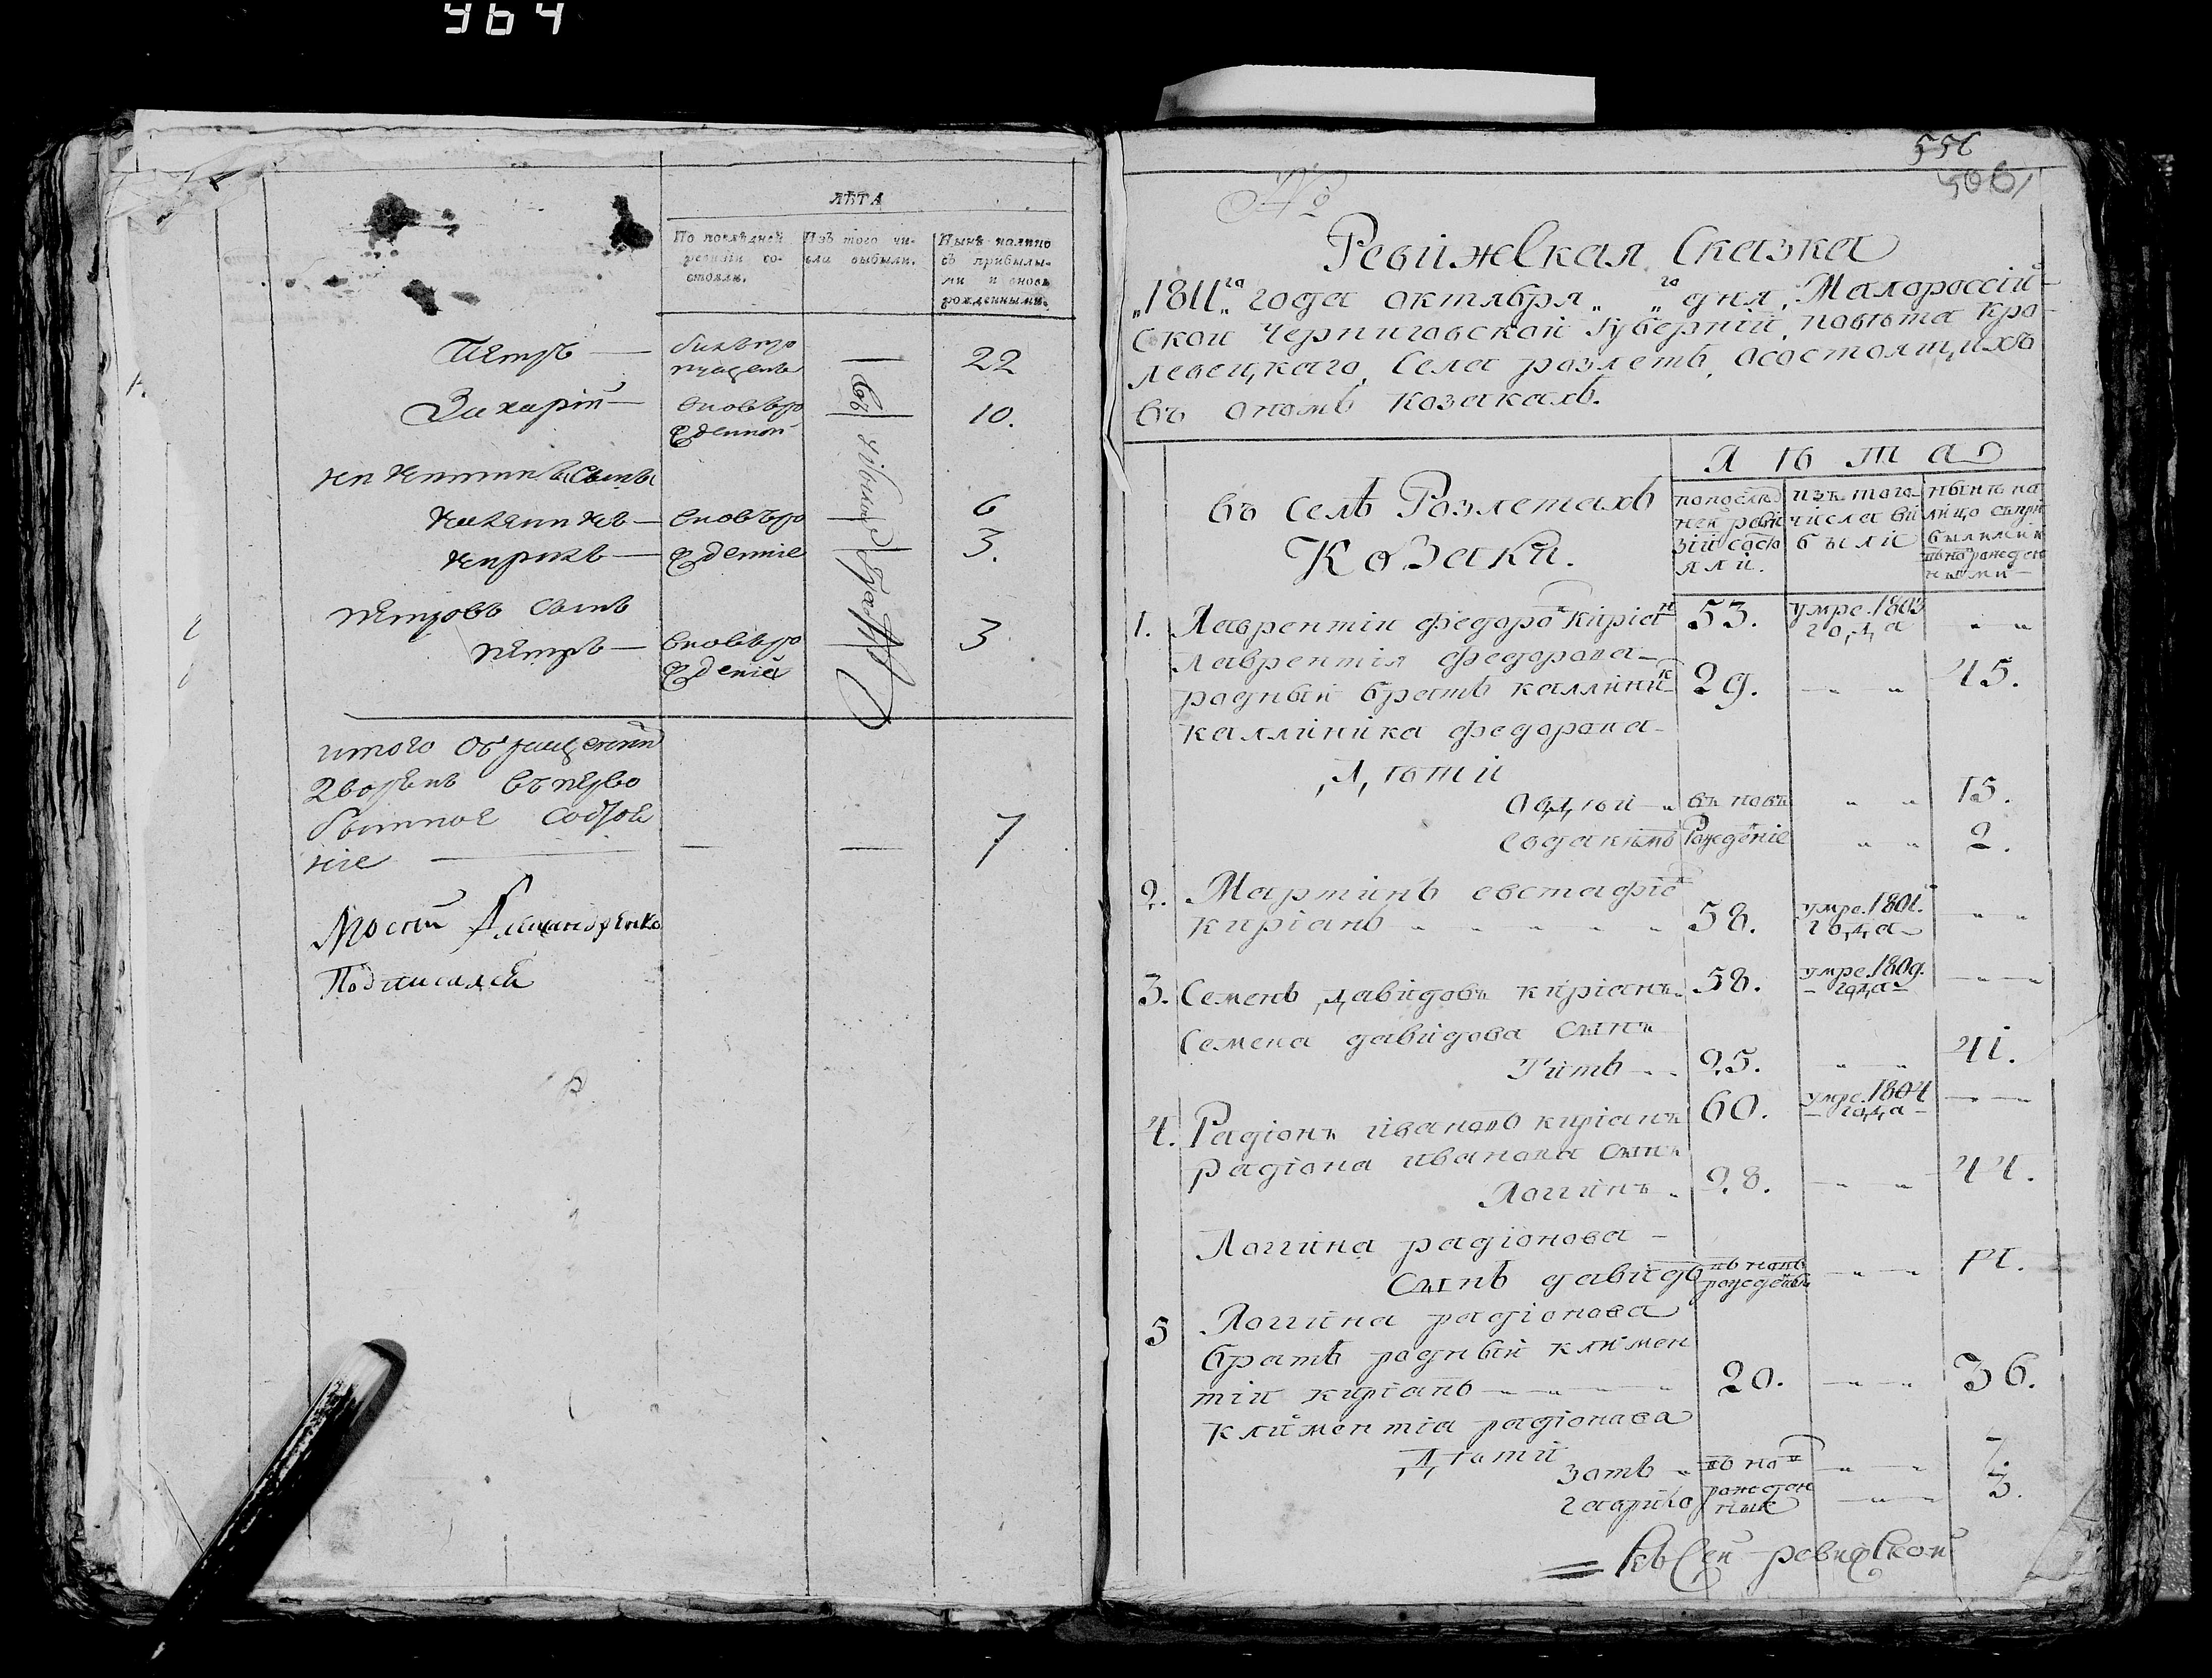 964
ЛѢТА
По послѣдней ревизіи состояли.
Изъ того числа выбыли.
Нынѣ налицо съ прибылыми и вновь рожденными.
Петръ — 22
Захарій — вновьро 10.
жденной
сынъ
вновьро 6
Кирилъ — жденніе 3.
Петровъ сынъ
Петръ — вновьро 3
жденій
итого
дворянъ въ перво
бытное
ніе — — — 7
Подписался
556
506
№
Ревижская Сказка
„1811„га года октября „ „го дня, Малороссій-
ской Черниговской Губерній, повѣта Кро-
левецкаго, Села розлетъ, осостоящихъ
въ ономъ козакахъ.
Лѣта
въ Селѣ Розлетахъ
Козаки.
попослѣд
ней реви
зіи состо
яли.
изъ того
числа вы
были
нынѣ на
лицо съпри
былыми и
вновь рожден
ными
1. Лаврентій федоро Киріан 53. умре. 1803 года „ „
Лаврентія федорова
родный братъ каллиник 29. „ „ 45.
каллиника федорова
Дѣти
Овдѣй „ въ новь „ „ 15.
евдакимъ Рожденіе „ „ 2.
2. Мартинъ евстафіе
киріанъ 58. умре. 1801. года „ „
3. Семенъ давидовъ киріанъ 58. умре. 1809. года
Семена давидова сынъ
Титъ 25. „ „ 41.
4. Радіонъ ивановъ киріанъ 60. умре. 1804 года
радіона иванова сынъ
Логинъ 28. „ „ 44.
Логина радіонова
сынъ давидъ въ новь рожденъ „ „ 14.
5 Логина радіонова
братъ родный климен
тій киріанъ 20. „ „ 36.
климентіа радіонова
Дѣти
зотъ „ въ но „ „ 7.
гаврило рожден ные „ 3.
Къ сей ревиской